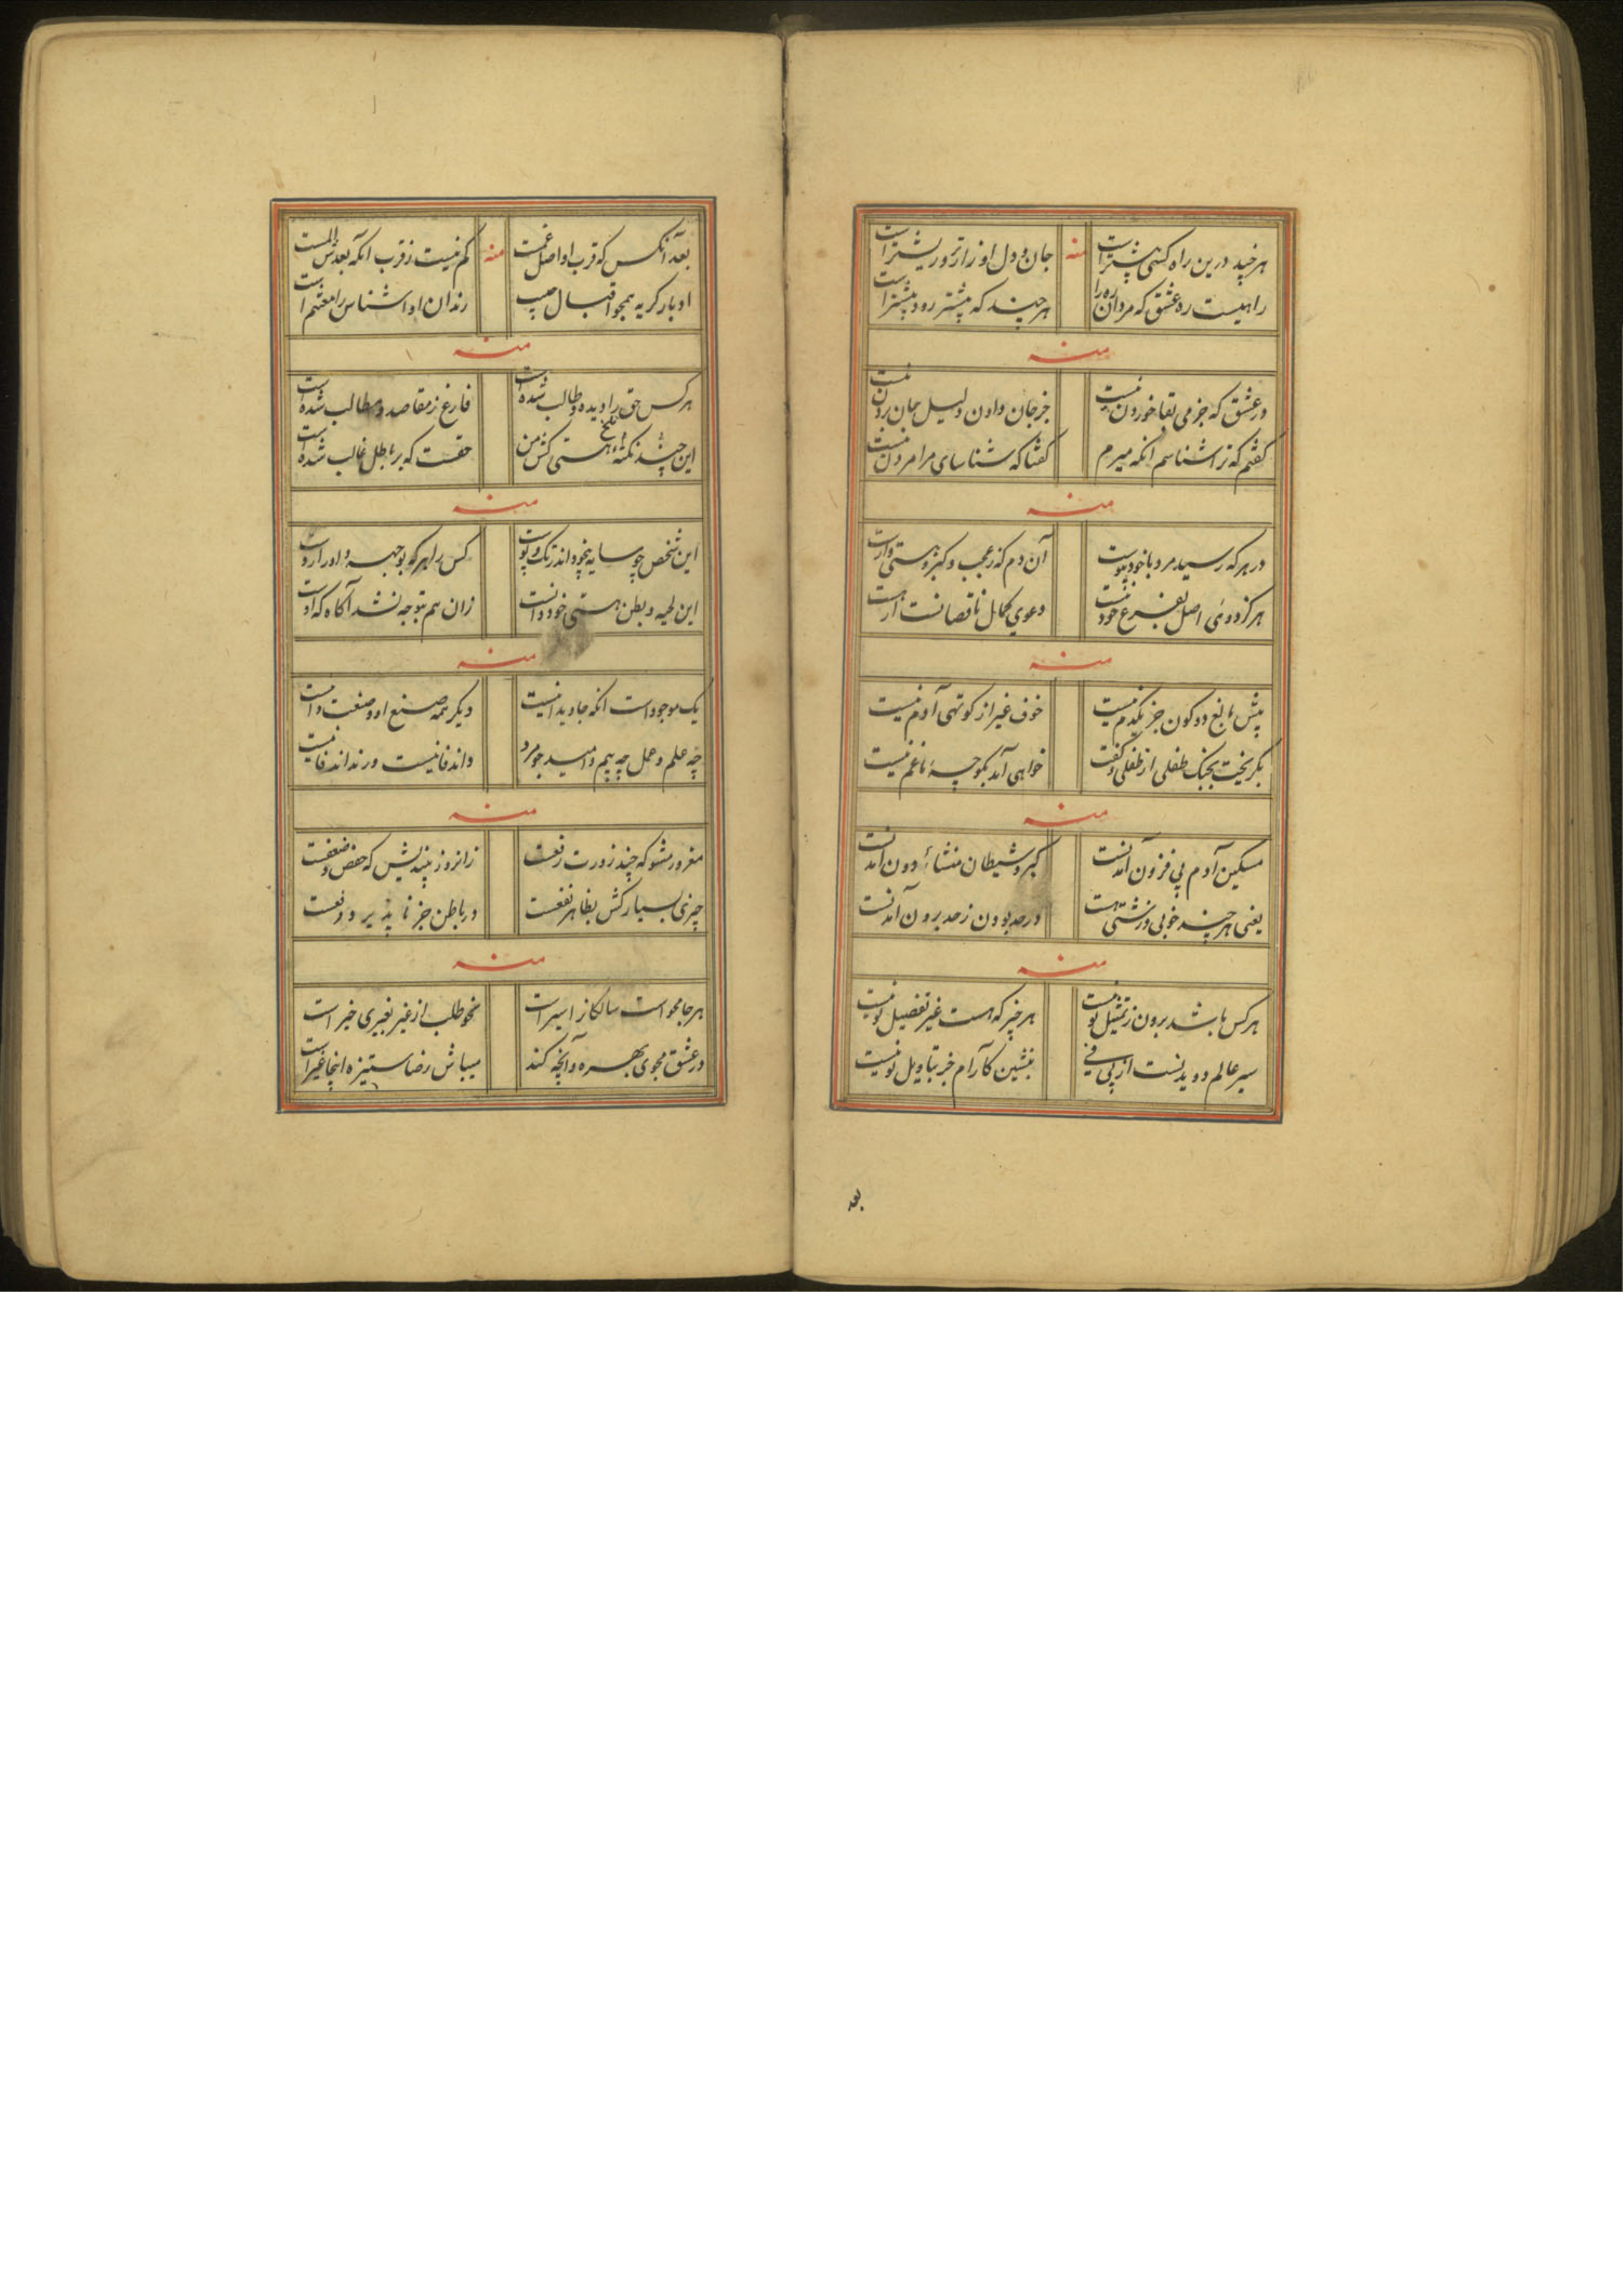 هرچند درین راه کسی پیشتر است
منه
جان و دل او زار تر و ریشتر است
راهیست ره عشق که مردان ره را
هرچند که پیشتر رود پیشتر است
منه
در عشق که جز می بقا خوردن نیست
جز جان دادن دلیل جان بردن نیست
گفتم که ترا شناسم آنگه میرم
گفتا که شناسای مرا مردن نیست
منه
در هر که رسید مرد با خود نیکوست
آن دم که ز عجب و کبر و هستی وارست
هرگز دوئی اصل بفرع خود نیست
دعوی کمال ناقصانست ار هست
منه
پیش مانع دو کون جز یکدم نیست
خوف غیر از کوتهی آدم نیست
بگریخت بجنگ طفلی از طفلی و گفت
خواهی آمد بکوچهٔ ما غم نیست
منه
مسکین آدم پی فزون آمدنست
کبر و شیطان منشاء دون آمدنست
یعنی هرچند خوبی و زشتی هست
در حد بودن ز حد برون آمدنست
منه
هرکس باشد برون ز تمثیل تو نیست
هر چیز که هست غیر تفصیل تو نیست
سیر عالم دویدنست از پی
بنشین کارام جز بتاویل تو نیست
بعد
بعد آنکس که قرب او اصل غمست
منه
کم نیست ز قرب آنکه بعدش المست
ادبار گریه همچو اقبال حبیب
رندان ادا شناس را مغتنم است
منه
هرکس حق را دیده و طالب شده است
فارغ ز مقاصد و مطالب شده است
این چند نکته تلخ هستی کش من
حقست که بر باطل غالب شده است
منه
این شخص چو سایه بخود اندر تک و پوست
کس را هر کو بوجه و او را روست
این لحیه و بطن هستی خود دانست
زان هم بتوجه نشد آگاه که اوست
منه
یک موجود است آنکه جاویدانیست
دیگر همه صنع او و صنعت دانیست
چه علم و عمل چه بیم و امید چو مرد
داند فانیست ور نداند فانیست
منه
مغرور مشو که چند زورت رفعست
زانروز بیندیش که خفض و ضعفست
چیزی بسیار کش بظاهر نفعست
در باطن جز نا پذیر و دفعست
منه
هر جا محو است سالکانرا سیر است
محو طلب از غیر بغیری خیر است
در عشق مجوی بهره و آنچه کند
میباش رضا ستیزه اینجا غیر است